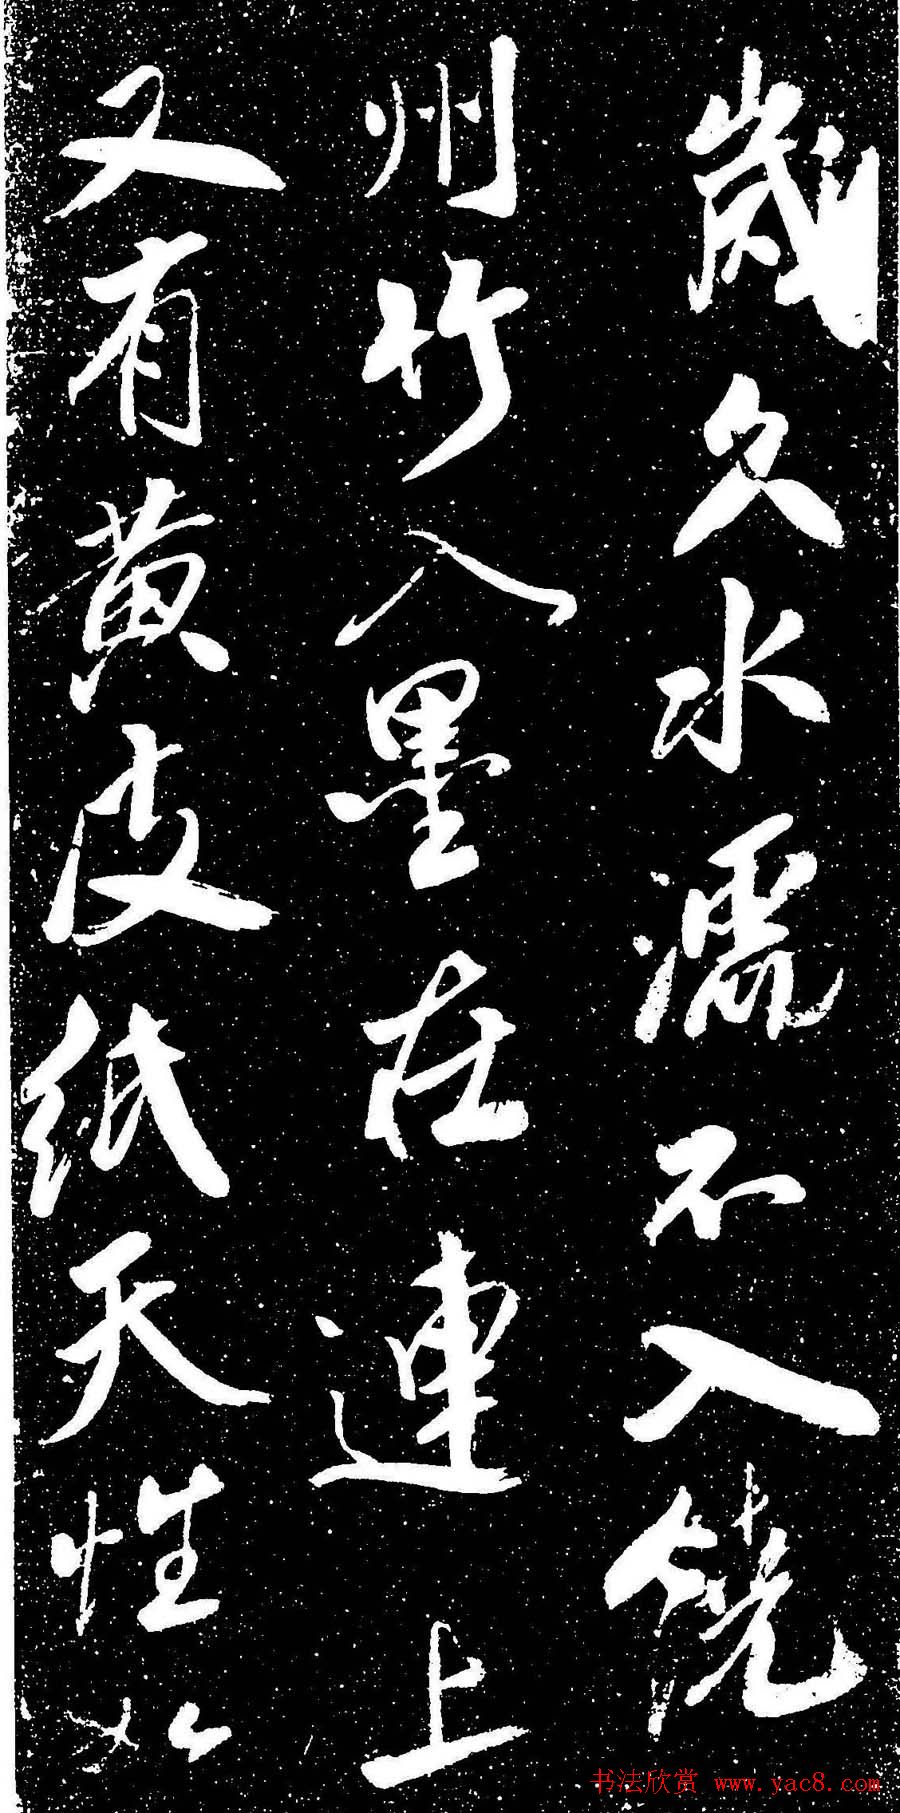 歲久水濡不入饒
州竹入墨在連上
又有黄皮紙天性如
书法欣赏 www.yac8.com